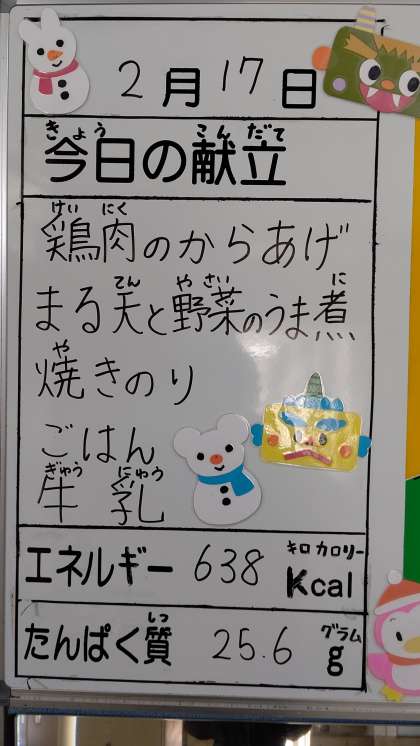 2月17日
きょう こんだて
今日の献立
けい にく
鶏肉のからあげ
てん や さい に
まる天と野菜のうま煮
や
焼きのり
ごはん
ぎゅう にゅう
牛 乳
キロ カロリー
エネルギー 638 Kcal
しつ グラム
たんぱく質 25.6 g